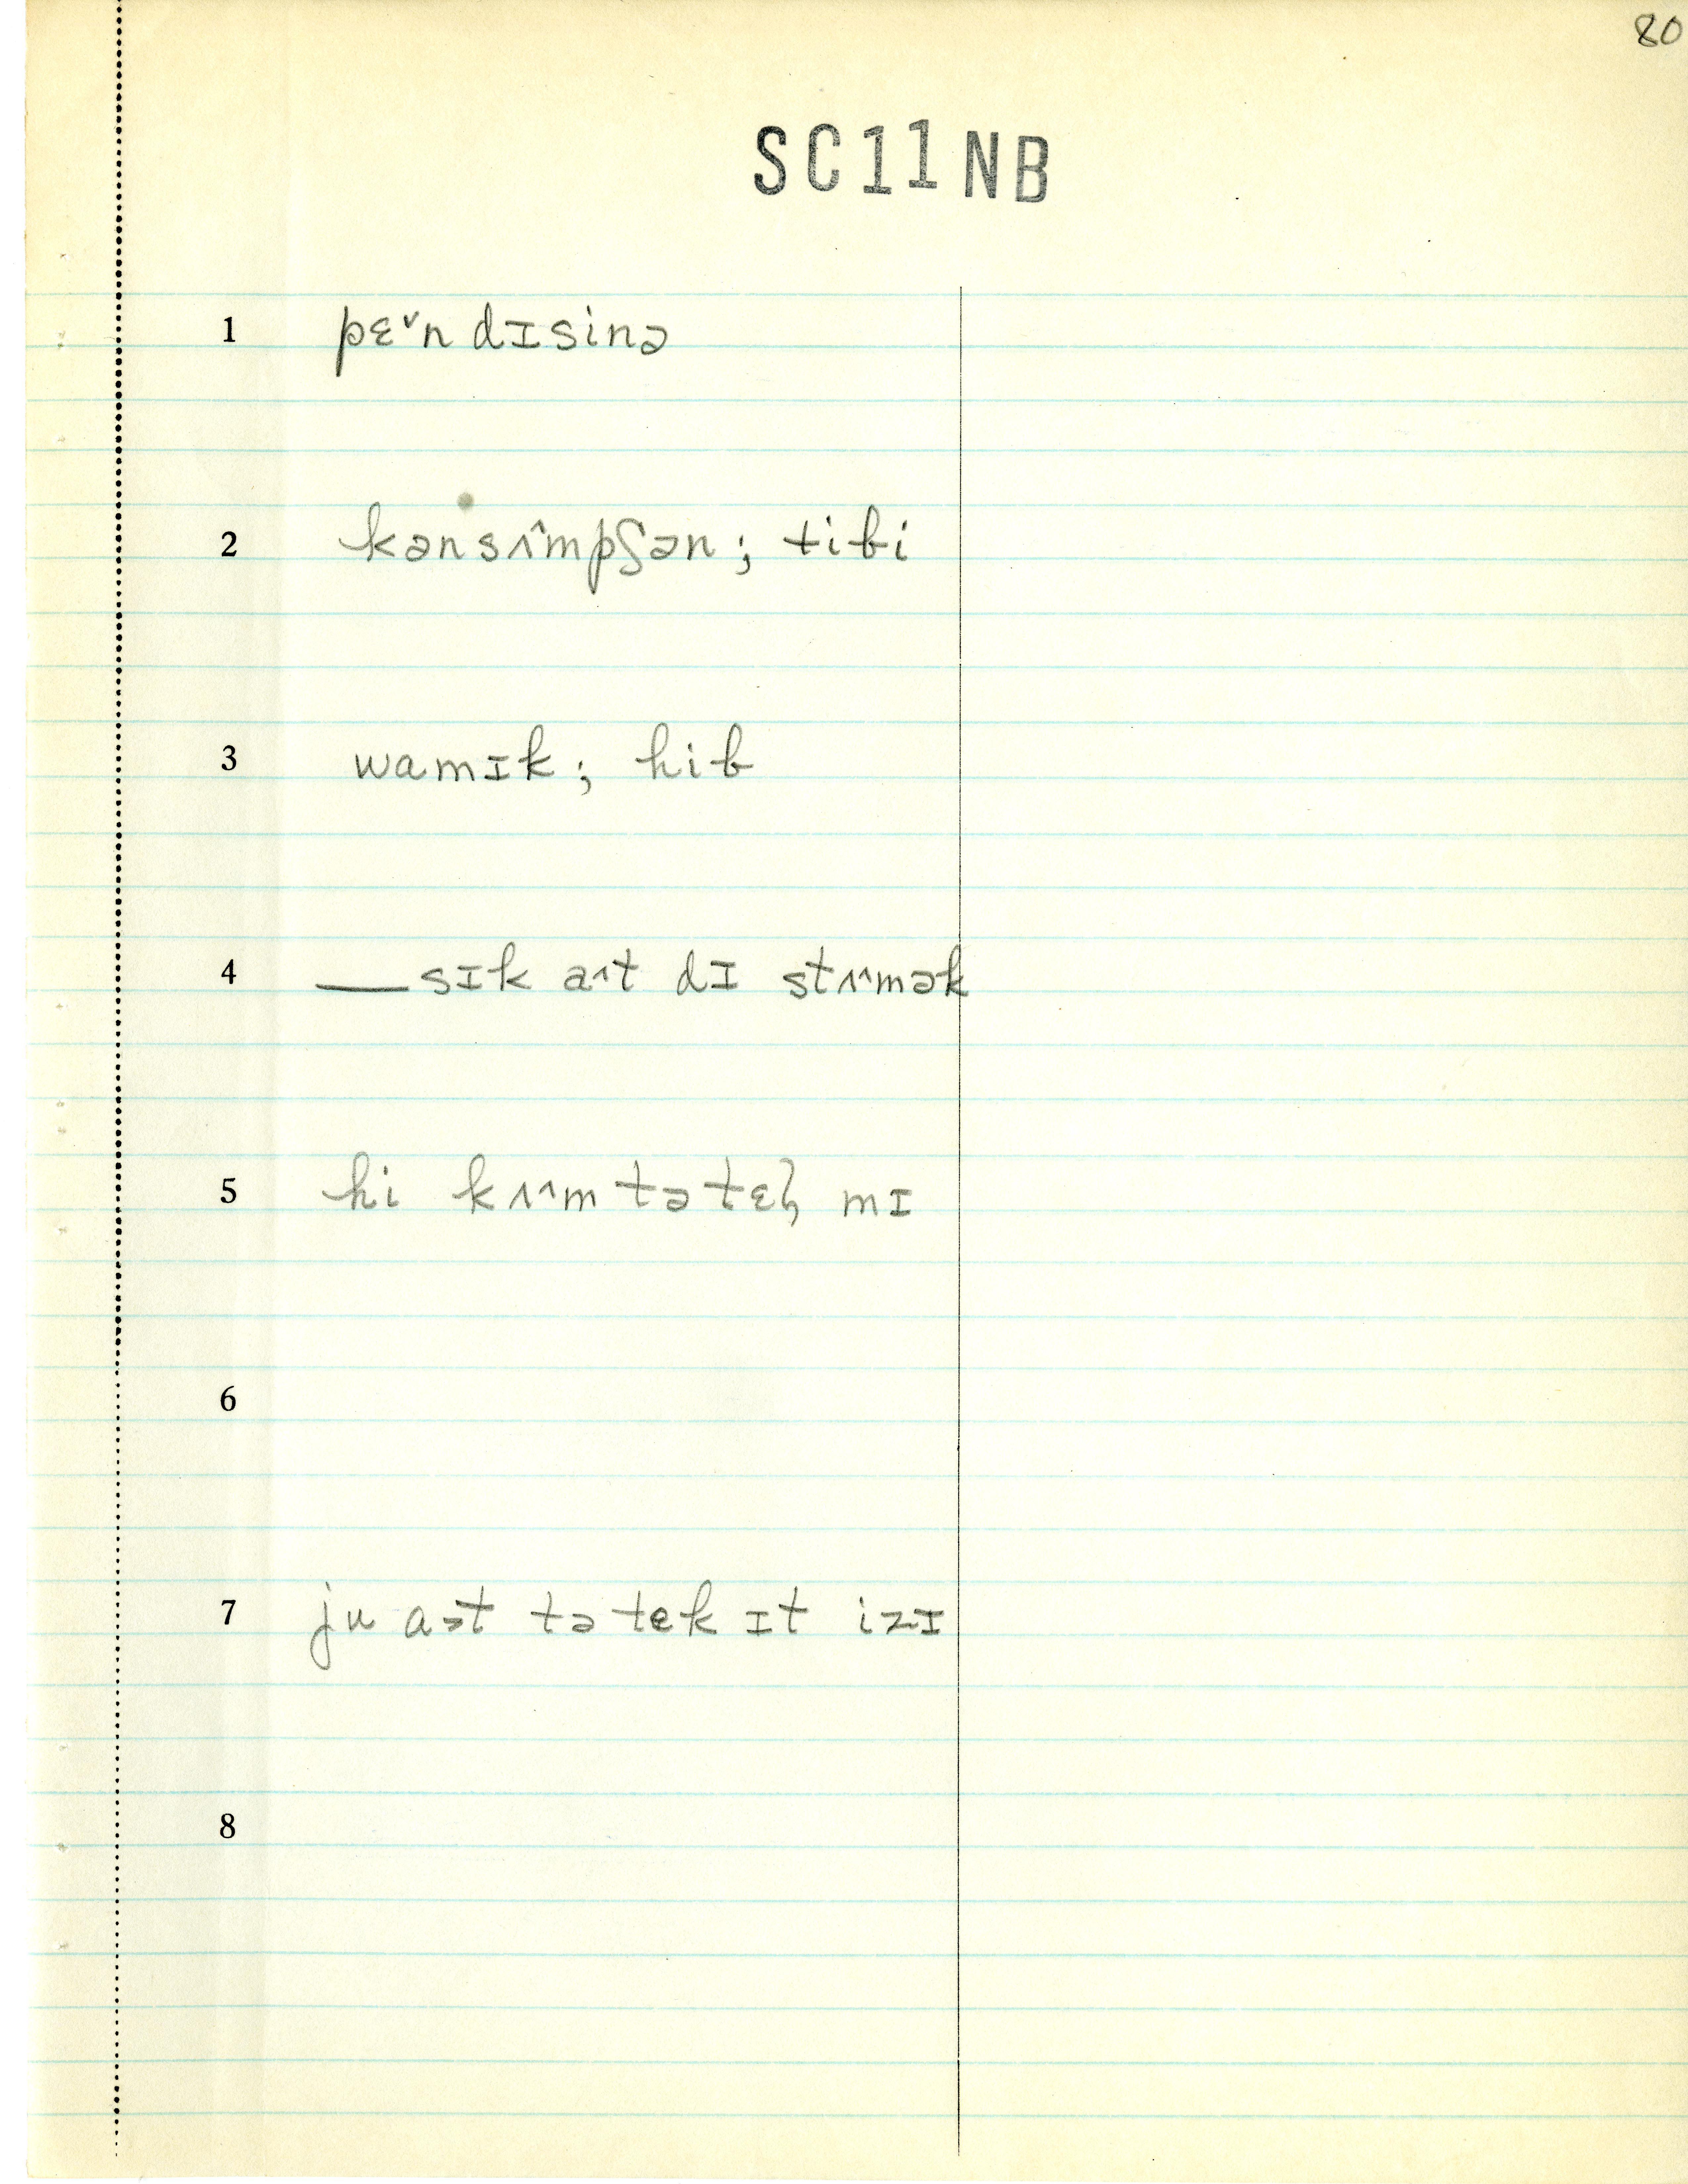 80
SC11NB
1 pɛ˅n dɪsinə
2 kənsʌ^mpʃən; tibi
3 wamɪk; hib
4 ___ sɪk aˆt dɪ stʌ^mək
5 hi kʌ^m tə tɛl̩ mɪ
6
7 ju aət tə tek ɪt izɪ
8